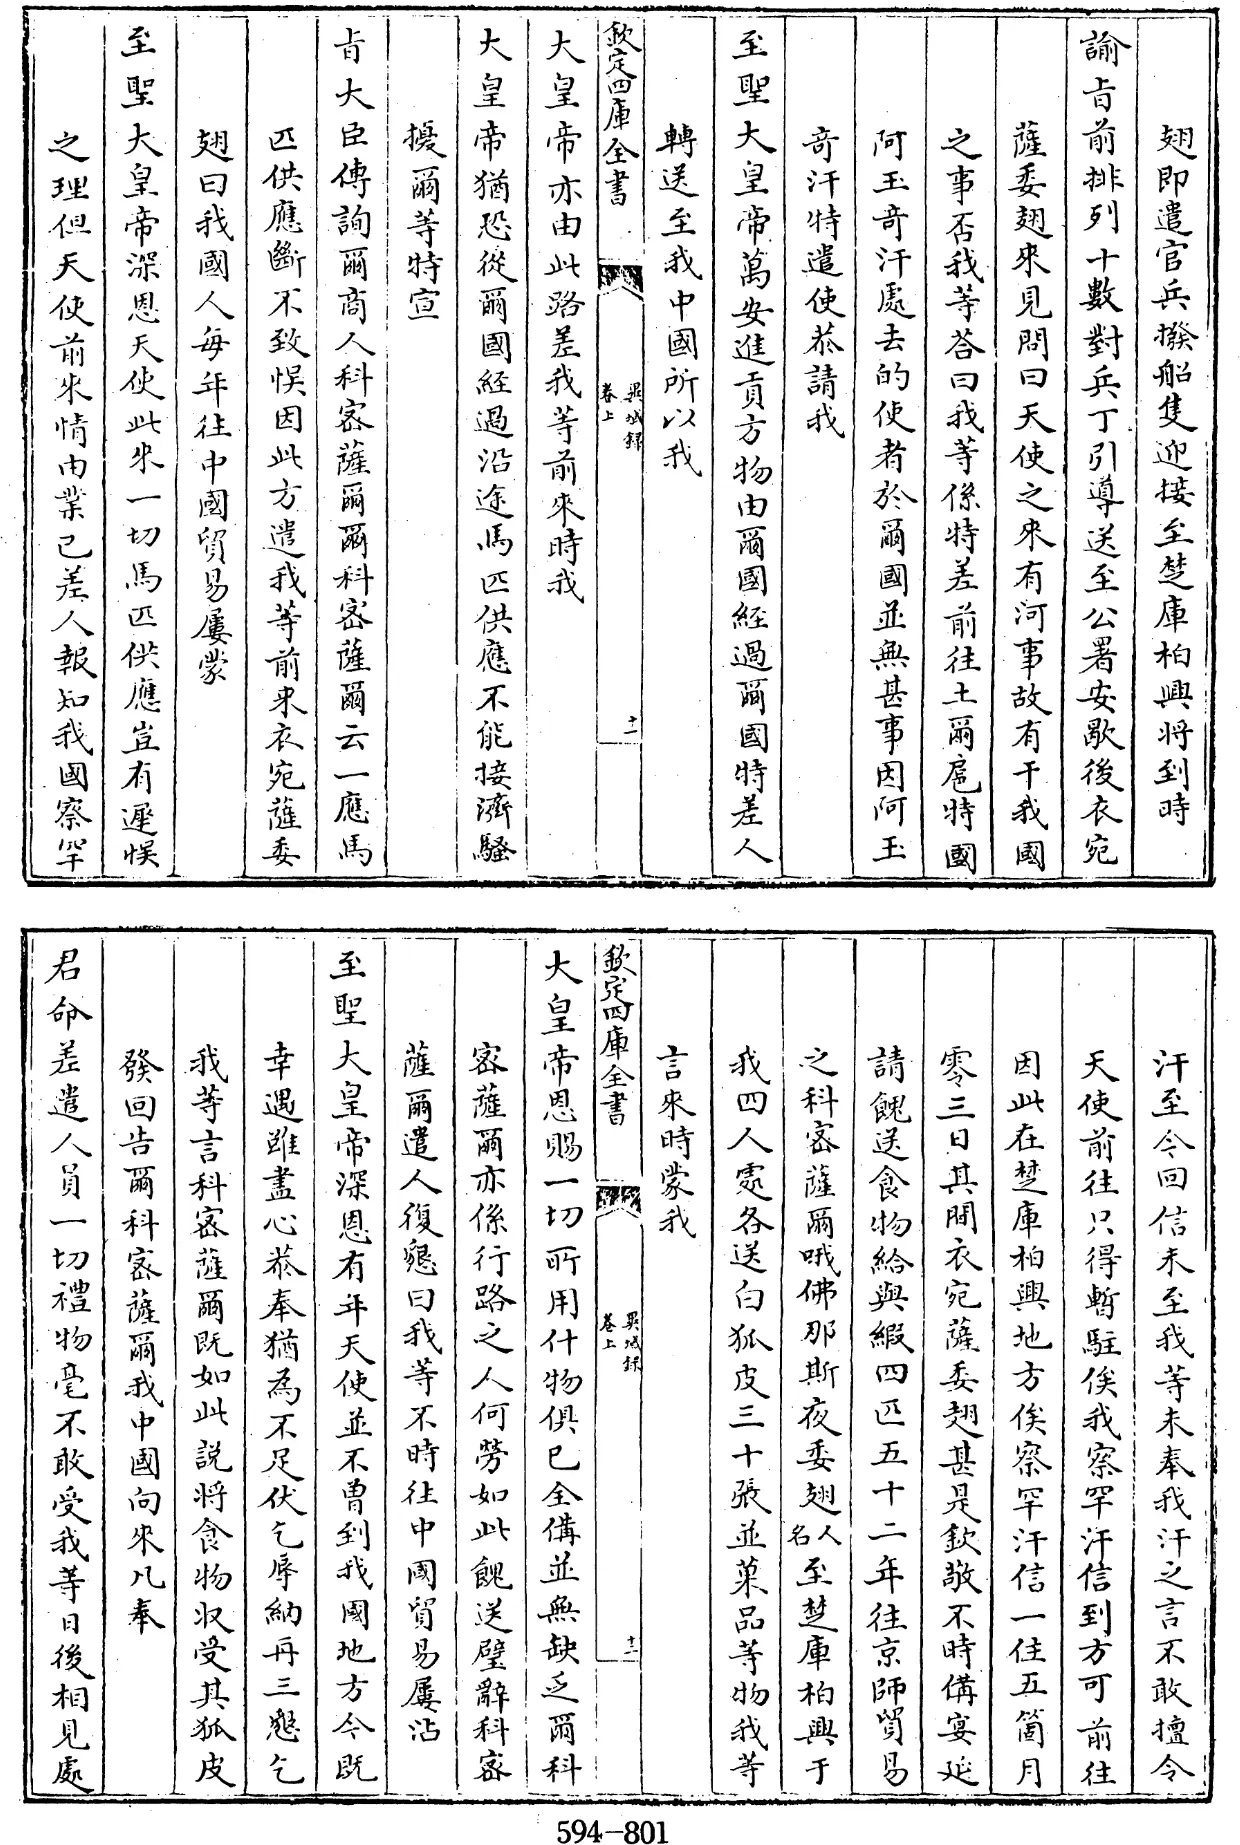 翅即遣官兵撥船隻迎接至楚庫柏興將到時
諭旨前排列十數對兵丁引導送至公署安歇後衣宛
薩委翅來見問曰天使之來有河事故有干我國
之事否我等荅曰我等係特差前往土爾扈特國
阿玉竒汗處去的使者於爾國並無甚事因阿玉
竒汗特遣使恭請我
至聖大皇帝萬安進貢方物由爾國經過爾國特差人
轉送至我中國所以我
欽定四庫全書
異域録
卷上
十一
大皇帝亦由此路差我等前來時我
大皇帝猶恐從爾國經過沿途馬匹供應不能接濟騷
擾爾等特宣
旨大臣傳詢爾商人科宻薩爾爾科宻薩爾云一應馬
匹供應斷不致悞因此方遣我等前來衣宛薩委
翅曰我國人每年往中國貿易屢蒙
至聖大皇帝深恩天使此來一切馬匹供應豈有遲悞
之理但天使前來情由業已差人報知我國察罕
汗至今回信未至我等未奉我汗之言不敢擅令
天使前往只得暫駐俟我察罕汗信到方可前往
因此在楚庫柏興地方俟察罕汗信一住五箇月
零三日其間衣宛薩委翅甚是欽敬不時備宴延
請餽送食物給與緞四匹五十二年往京師貿易
之科宻薩爾哦佛那斯夜委翅人名至楚庫柏興于
我四人處各送白狐皮三十張並菓品等物我等
言來時蒙我
欽定四庫全書
異域録
卷上
十二
大皇帝恩賜一切所用什物俱已全備並無缺乏爾科
宻薩爾亦係行路之人何勞如此餽送璧辭科宻
薩爾遣人復懇曰我等不時往中國貿易屢沾
至聖大皇帝深恩有年天使並不曽到我國地方今既
幸遇雖盡心恭奉猶為不足伏乞辱納再三懇乞
我等言科宻薩爾既如此説將食物収受其狐皮
發回告爾科宻薩爾我中國向來凡奉
君命差遣人員一切禮物毫不敢受我等日後相見處
594-801